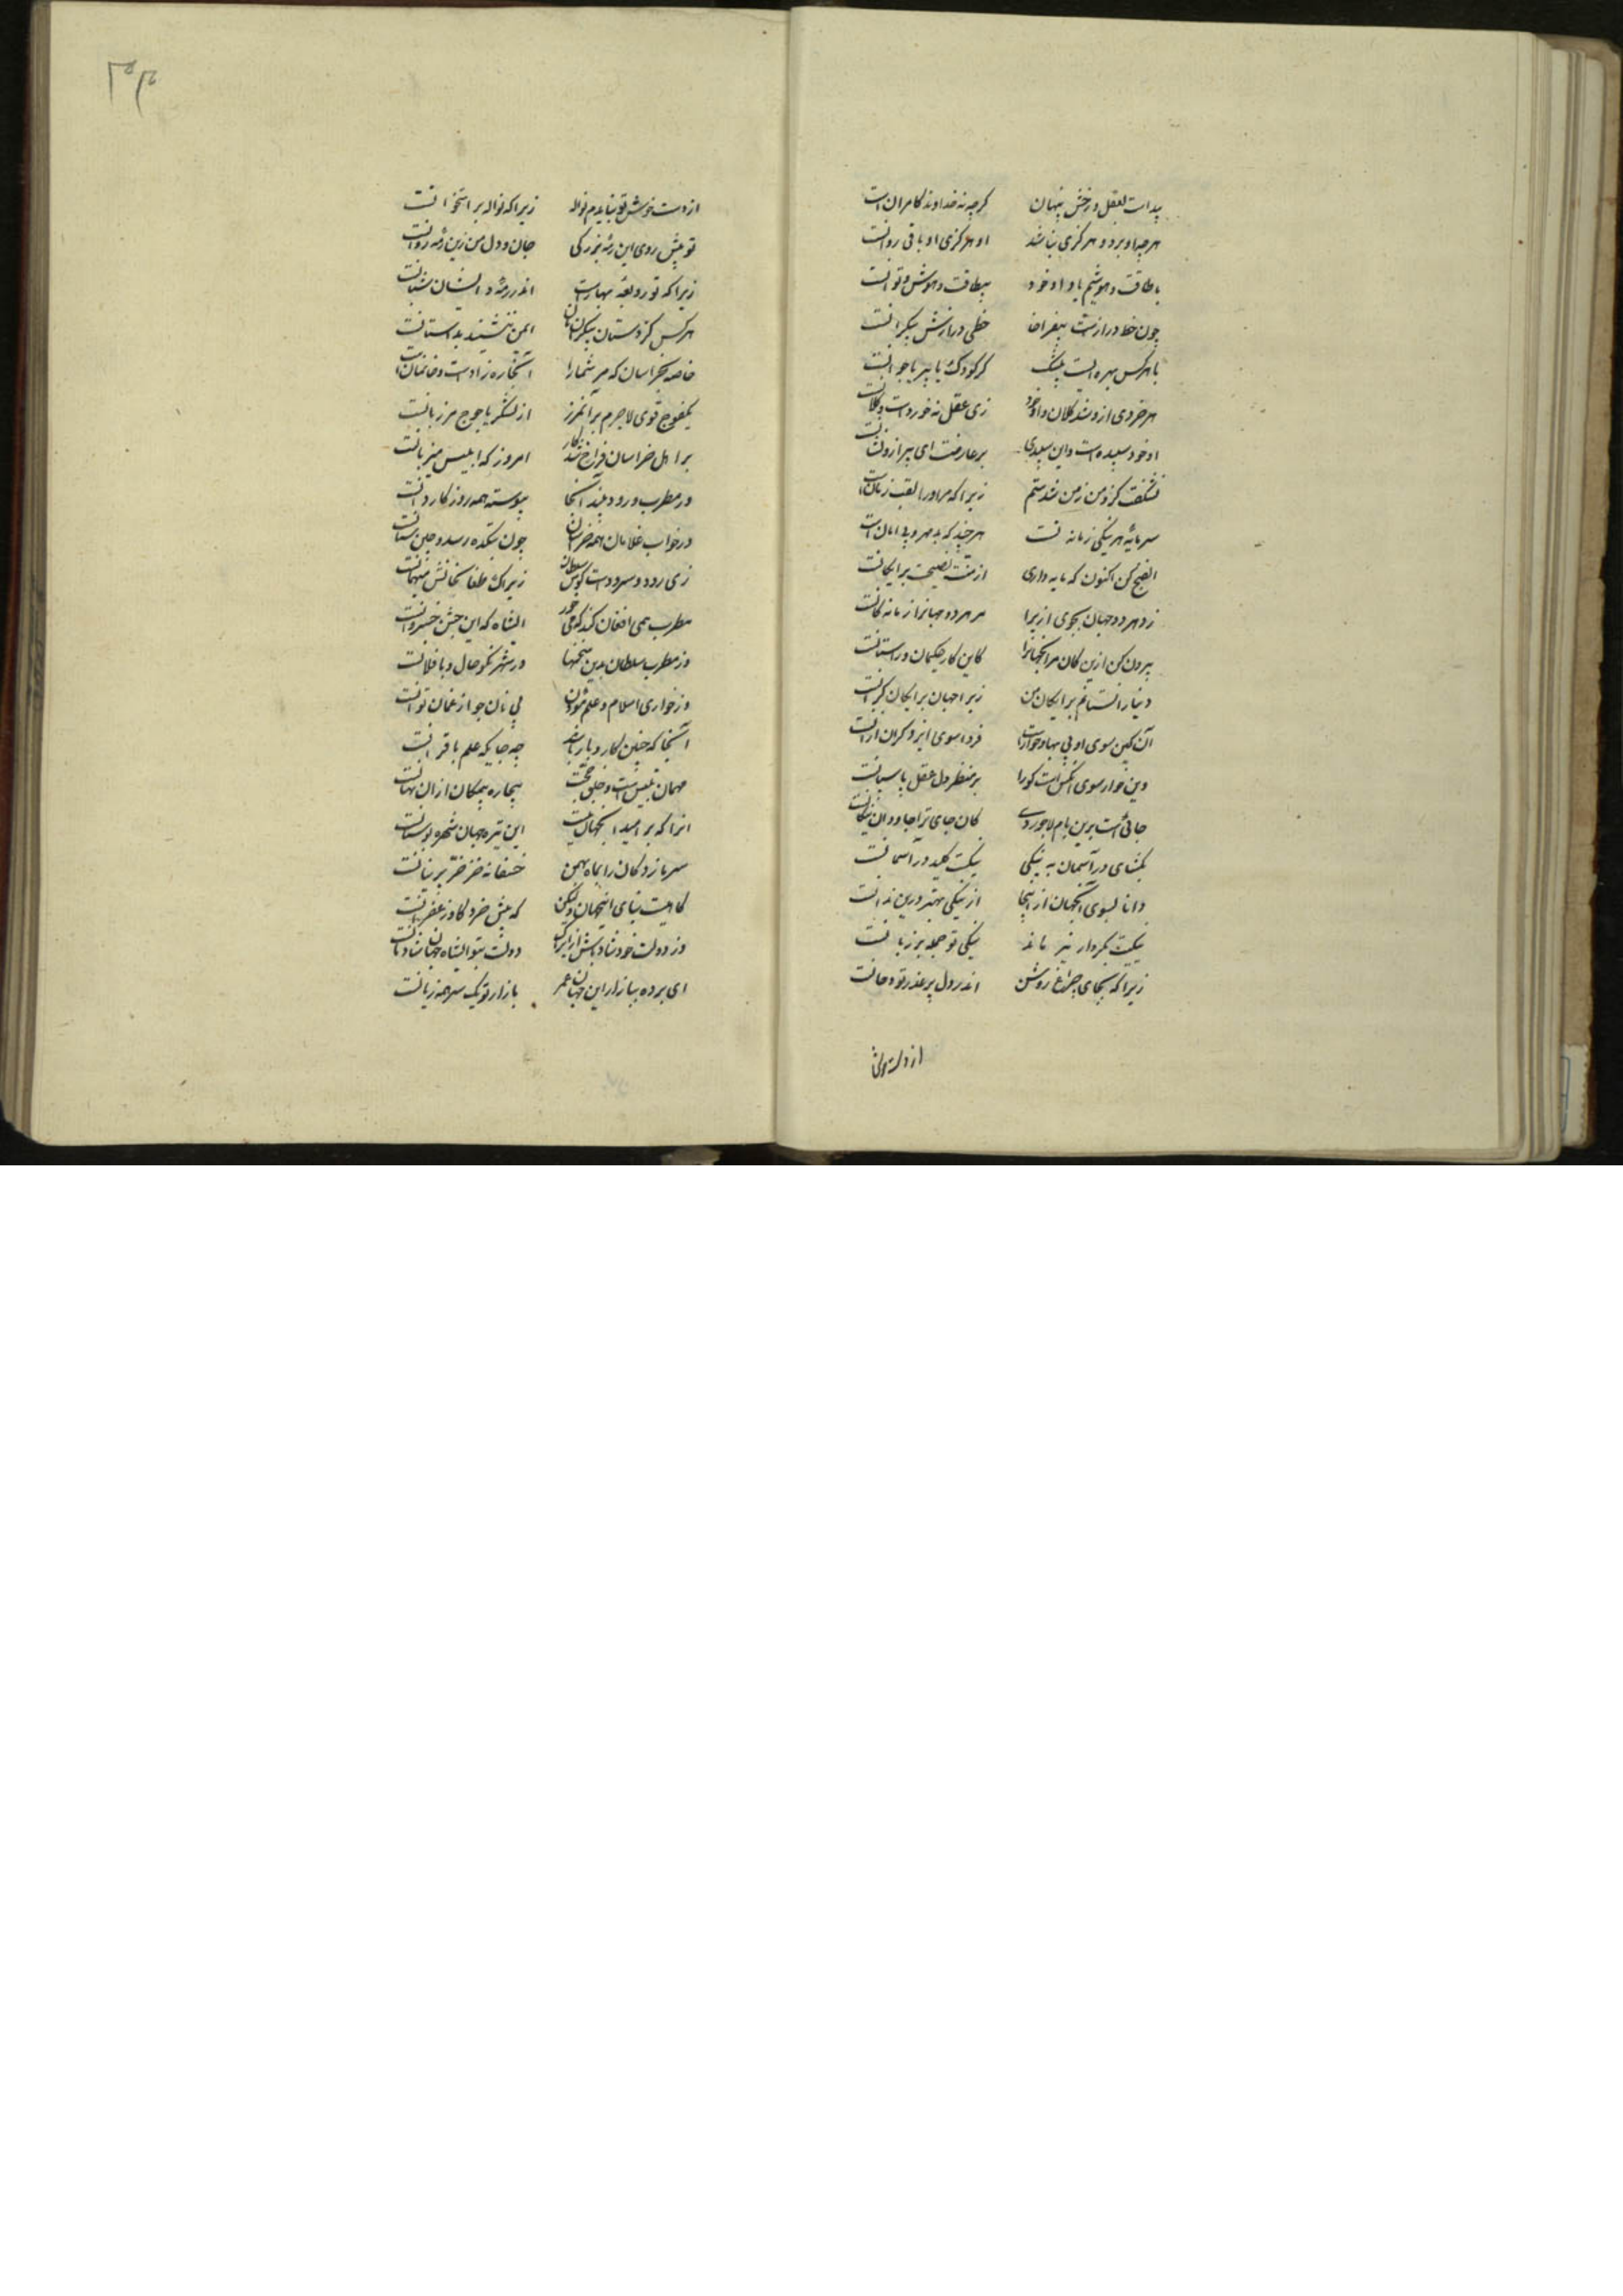 پیداست بعقل و زحس پنهان گرچه نه خداوند کامران است
هر چه او برود هرگزی نباشد او هرگزی و باقی و روانست
با طاقت و هوشیم ما و او خود بیطاقت و هوش و توانست
چون خط دراز است بیفراخا خطی درازش بیکرانست
با هر کس بهره ایست بیشک گر کودک یا پیر یا جوانست
هر خردی ازو شد کلان و او خود زی عقل نه خورد است و نه کلانست
او خود نه سپیده است و این سپیدی بر عارضت ای پیر ازو نشانست
نشگفت کزو من زمن شدستم زیرا که مر او را لقب زمان است
سرمایه هر نیکی زمانه ست هر چند که بد مهر و بی امان است
الفنج کن اکنون که مایه داری از منت نصیحت برایگانست
زو هر دو جهان بجوی ازیرا مر هر دو جهانرا زمانه کانست
بیرون کن ازین کان مر آنجهانرا کاین کار حکیمان و راستانست
دنیا نستانم برایگان من زیرا جهان برایگان گرانست
آن کین سوی او بی بها و خوار است فردا سوی ایزد گران ازانست
وین خوار سوی آنکس است کورا بر منظر دل عقل پاسبانست
جائی است برین بام لاجوردی کان جای ترا جاودان مکانست
بگشای در آسمان به نیکی نیکیت کلید در آسمانست
دانا بسوی آنجهان از اینجا از نیکی بهتر دری ندانست
نیکیت بکردار نیز باید نیکی تو جمله بر زبانست
زیرا که بجای چراغ روشن اندر دل پر غدر تو دخانست
از دست خوش
۳۰۴
از دست خوش تو نبایدم نواله زیرا که نواله پر استخوانست
تو پیش روی این رمه بزرگی جان و دل من زین رمه روانست
زیرا که تو روبه بهارست اندر رمه و ایشان شبانست
هر کس کز دستان بیکرانشان ایمن ننشیند بداستانست
خاصه بخراسان که مر شما را آنجا ره زادست و خانمانست
یکفوج قوی لاجرم بر آنمرز از لشکر یاجوج مرزبانست
بر اهل خراسان فراخ شد کار امروز که ابلیس میزبانست
وز مطرب و رود و نبید آنجا پیوسته همه روز کاروانست
وز خوب غلامان همه خراسان چون بتکده رسد و چین ستانست
زی رود و سرودست گوش سلطان زیرا که طغا نخانش میهمانست
مطرب همی افغان کند که می خور ایشاه که این جشن خسروانست
وز مطرب سلطان بدین سخنها در شهر نکو حال و با فلانست
وز خواری اسلام و علم موذن بی نان جو از غمان توانست
آنجا که چنین کار و بار باشد چه جایگه علم یا قرانست
مهمان بلیس است و خلق حجت بیچاره بیمکان ازان نهانست
آنرا که بر امید آنجهان نیست این تیره جهان شهره بوستانست
سرما زدگان را بماه بهمن خفتانه خز خز پرنیانست
کاهیست تباه ای اینجهان ولیکن که پیش خر و گاو زعفرانست
وز دولت خود شاد باش ازیرک دولت بتو ایشاه جهان شادمانست
ای برده ببازار این جهان عمر بازار تو یک سر همه زیانست